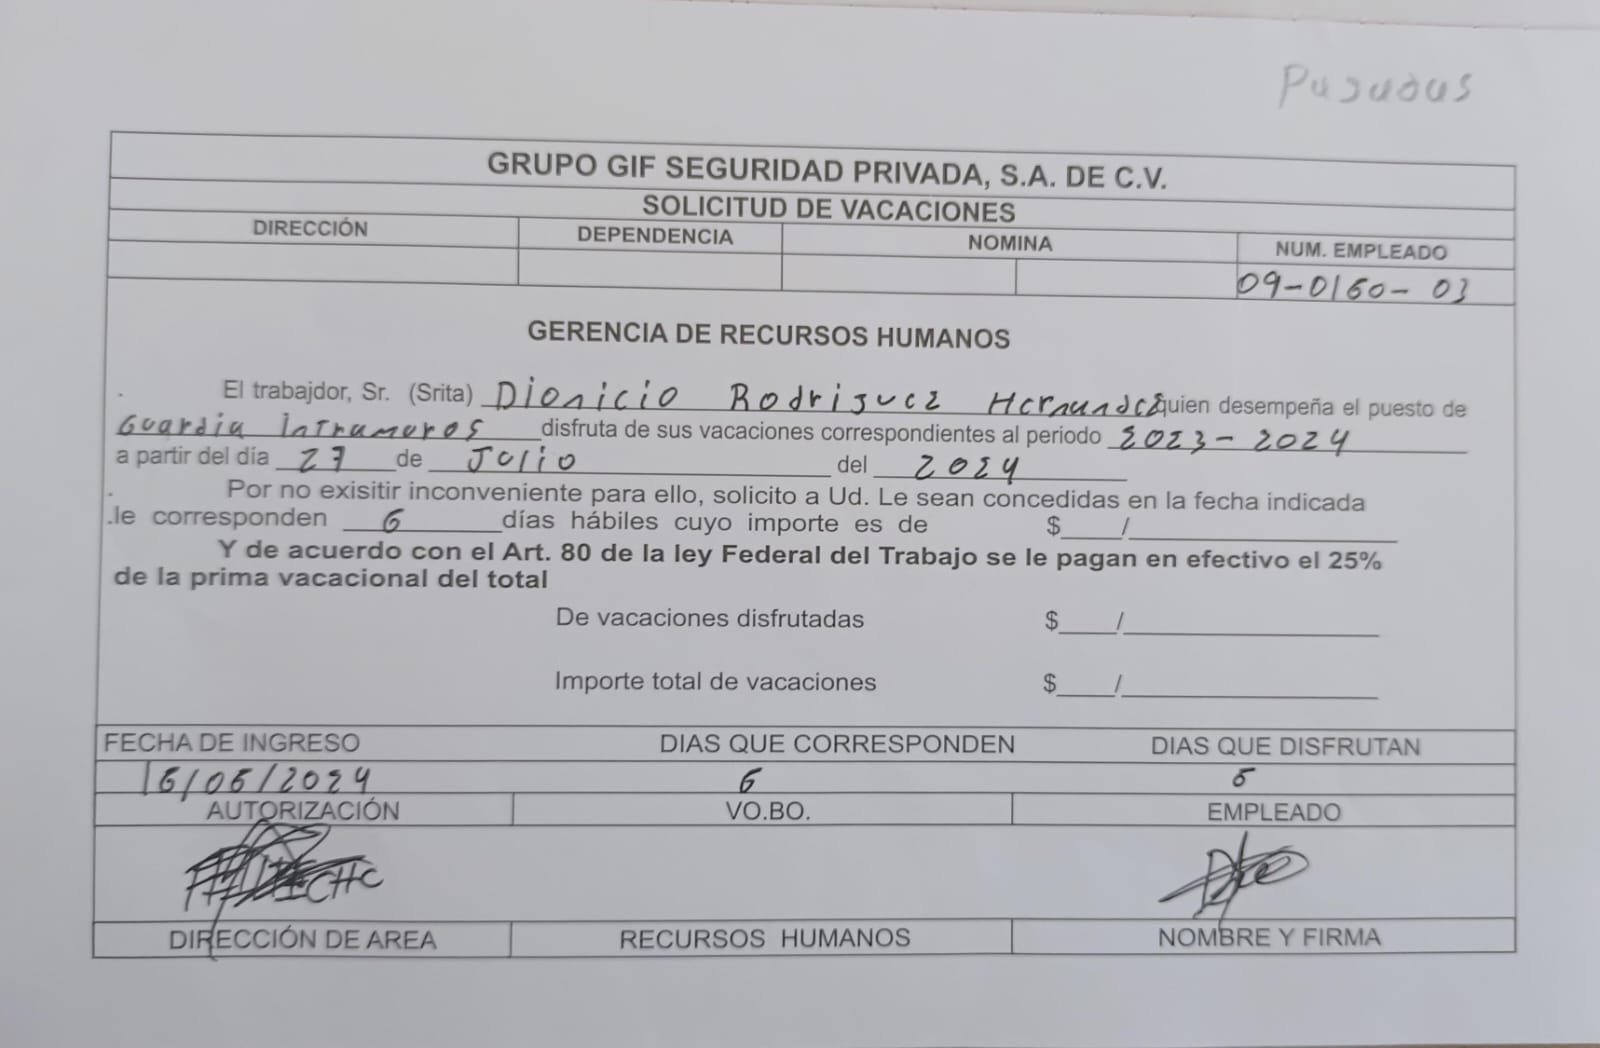 Pagadas
GRUPO GIF SEGURIDAD PRIVADA, S.A. DE C.V.
SOLICITUD DE VACACIONES
DIRECCIÓN DEPENDENCIA NOMINA NUM. EMPLEADO
09-0160-03
GERENCIA DE RECURSOS HUMANOS
El trabajdor, Sr. (Srita) Dionicio Rodriguez Hernandez quien desempeña el puesto de
Guardia intramuros disfruta de sus vacaciones correspondientes al periodo 2023-2024
a partir del día 27 de Julio del 2024
Por no exisitir inconveniente para ello, solicito a Ud. Le sean concedidas en la fecha indicada
.le corresponden 6 días hábiles cuyo importe es de $____/____
Y de acuerdo con el Art. 80 de la ley Federal del Trabajo se le pagan en efectivo el 25%
de la prima vacacional del total
De vacaciones disfrutadas $____/____
Importe total de vacaciones $____/____
FECHA DE INGRESO DIAS QUE CORRESPONDEN DIAS QUE DISFRUTAN
16/06/2024 6 6
AUTORIZACIÓN VO.BO. EMPLEADO
DIRECCIÓN DE AREA RECURSOS HUMANOS NOMBRE Y FIRMA